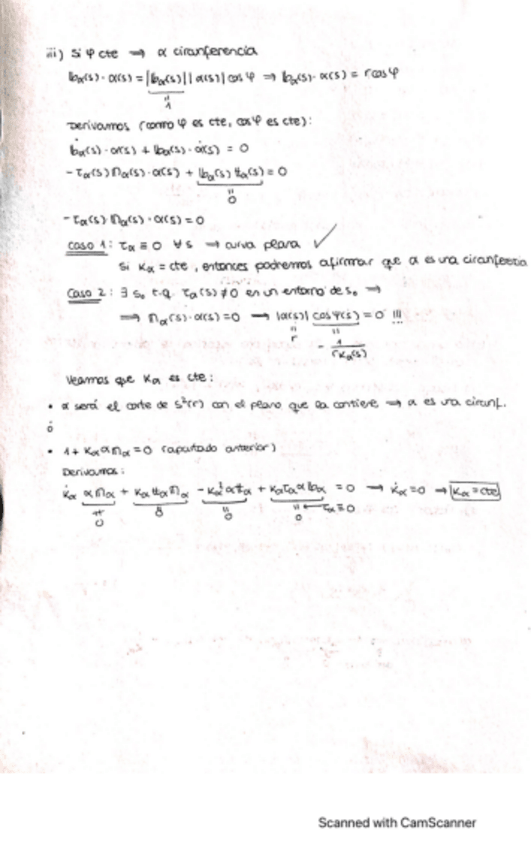 iii) Si φ cte ⟹ α circunferencia
𝕓α(s)·α(s) = |𝕓α(s)| |α(s)| cos φ ⟹ 𝕓α(s)·α(s) = r cos φ
1
Derivamos (como φ es cte, cos φ es cte):
𝕓̇α(s)·α(s) + 𝕓α(s)·α̇(s) = 0
-τα(s) 𝕟α(s)·α(s) + 𝕓α(s) 𝕥α(s) = 0
0
-τα(s) 𝕟α(s)·α(s) = 0
Caso 1: τα ≡ 0 ∀s ⟹ curva plana ✓
Si κα = cte, entonces podremos afirmar que α es una circunferencia
Caso 2: ∃ s₀ t.q. τα(s) ≠ 0 en un entorno de s₀ ⟹
⟹ 𝕟α(s)·α(s) = 0 ⟶ |α(s)| cos φ(s) = 0 !!!
r
- 1/(rκα(s))
Veamos que κα es cte:
• α será el corte de S²(r) con el plano que la contiene ⟹ α es una circunf.
ó
• 1 + κα α 𝕟α = 0 (apartado anterior)
Derivamos:
κ̇α α 𝕟α + κα 𝕥α 𝕟α - κα² α 𝕥α + κα τα α 𝕓α = 0 ⟶ κ̇α = 0 ⟹ κα = cte
≠ 0 0 0 0 ⟵ τα ≡ 0
Scanned with CamScanner